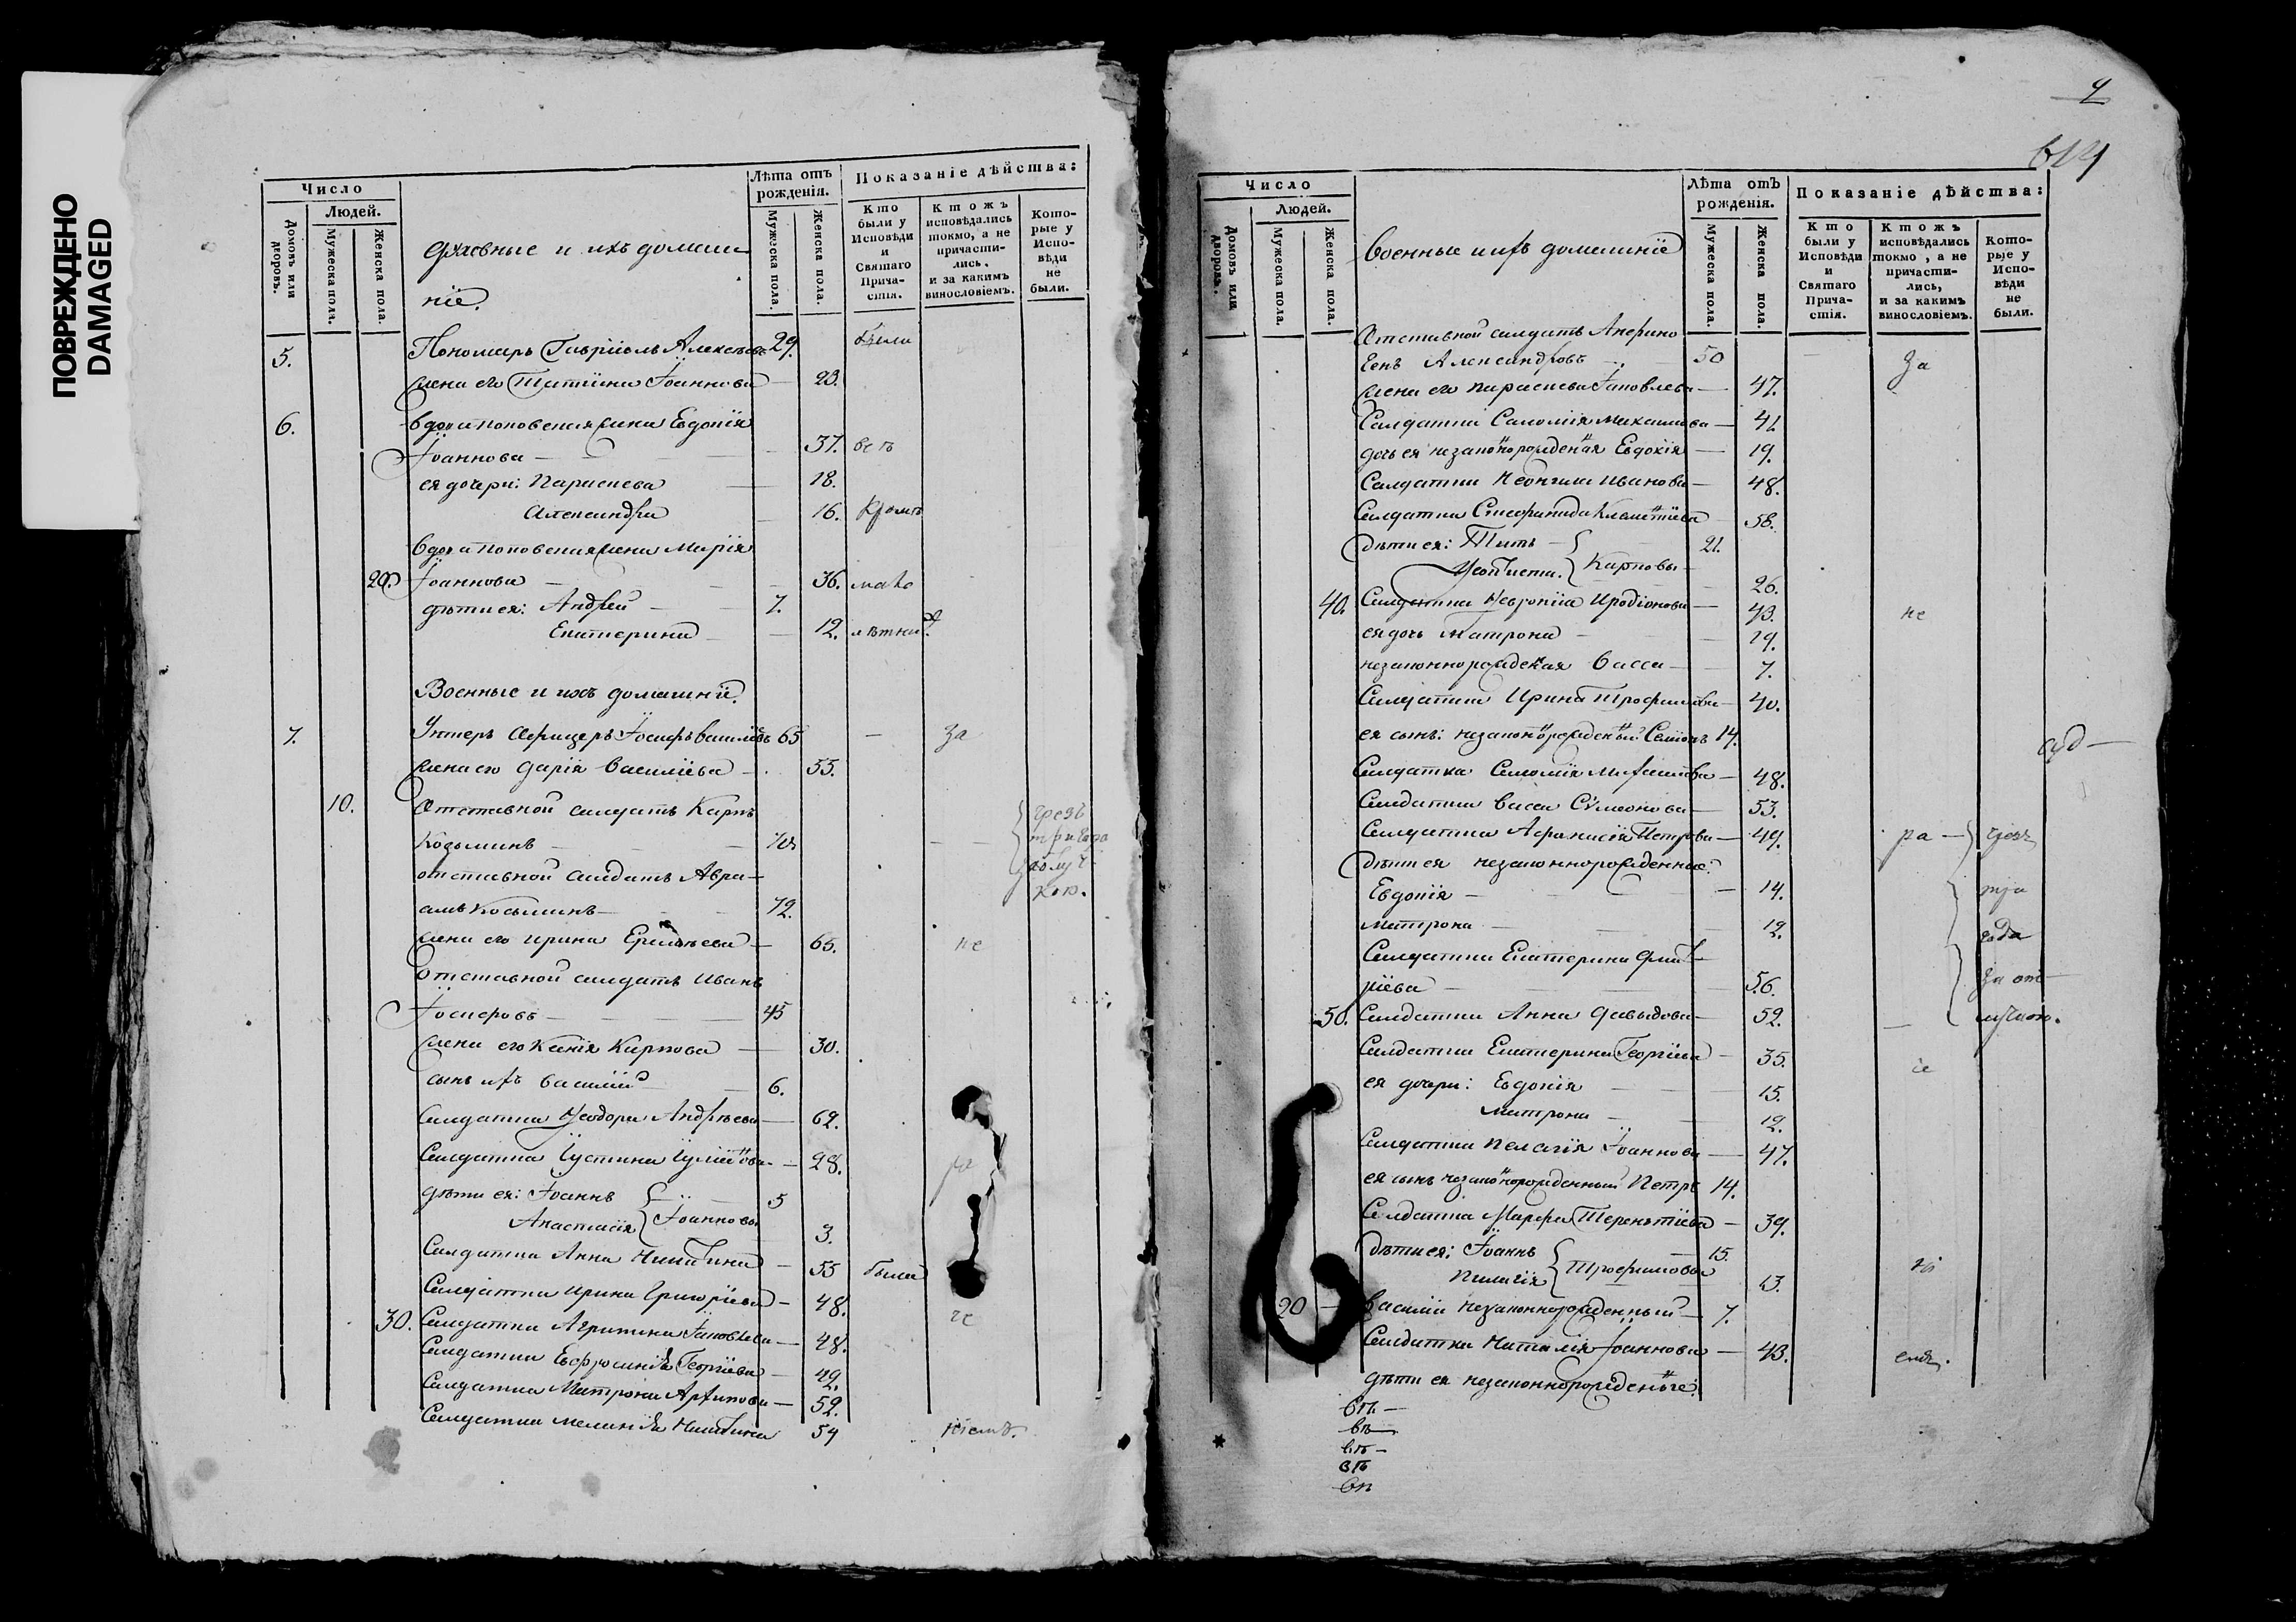 ПОВРЕЖДЕНО
DAMAGED
Число
Людей.
Домовъ или дворовъ.
Мужеска пола.
Женска пола.
Духовные и ихъ домаш-
ніе.
Лѣта отъ рожденія.
Мужеска пола.
Женска пола.
Показаніе дѣйства:
Кто были у Исповѣди и Святаго Прича-стія.
Ктожъ исповѣдались токмо, а не причасти-лись, и за какимъ винословіемъ.
Кото-рые у Испо-вѣди не были.
5. Пономарь Гавріилъ Алексѣевъ 29. были
жена его Татіана Іоаннова — 23.
6. вдова поповская жена Евдокія
Іоаннова — 37. всѣ
ея дочери: Параскева — 18.
Александра — 16. кромѣ
вдова поповская жена Марія
20. Іоаннова — 36. мало
дѣти ея: Андрей — 7.
Екатерина — 12. лѣтних.
Военные и ихъ домашніе.
7. Унтеръ Афицеръ Іосифъ Василіевъ 65 — За
жена его Дарія Василіева — 55.
10. Отставной салдатъ Карпъ
Козьминъ — чрезъ три года
отставной Салдатъ Авра-
амъ Косьминъ — 72.
жена его Ирина — 65. не
Отставной салдатъ Иванъ
Іосифовъ — 45
жена его Ксенія Карпова — 30.
сынъ ихъ Василій — 6.
Салдатка Ѳеодора Андрѣева — 62.
Салдатка Іустина — 28. ра
дѣти ея: Іоаннъ } — 5
Анастасія } Іоанновы 3.
Салдатка Анна Никитина — 55 были
Салдатка Ирина Григоріева — 48.
30. Салдатка Агрипина Іаковлева — 48. че
Салдатка Евфросинія Георгіева — 42.
Салдатка Матрона Архипова — 52.
Салдатка Меланія Никитина 54 ніемъ.
Число
Людей.
Домовъ или дворовъ.
Мужеска пола.
Женска пола.
Военные и ихъ домашніе
Лѣта отъ рожденія.
Мужеска пола.
Женска пола.
Показаніе дѣйства:
Кто были у Исповѣди и Святаго Прича-стія.
Ктожъ исповѣдались токмо, а не причасти-лись, и за какимъ винословіемъ.
Кото-рые у Испо-вѣди не были.
Отставной салдатъ
Александровъ — 50 За
жена его Параскева Іаковлева — 47.
Салдатка Саломія Михаилова — 41
дочь ея незаконорожденая Евдокія — 19.
Салдатка Неонила Иванова — 48.
Салдатка Стефанида Климентіева 58.
дѣти ея: Титъ — } 21.
Ѳеоктиста. } Карповы — 26.
40. Салдатка Ѳевронія Иродіонова — 43. не
ея дочь Матрона — 19.
незаконнорожденая Васса — 7.
Салдатка Ирина Трофимова — 40.
ея сынъ: незаконорожденый Семіонъ 14.
Салдатка Саломія Михаилова — 48.
Салдатка Васса Сѵмеонова — 53.
Салдатка Афанасія Петрова — 49. ра — чрезъ
дѣти ея незаконнорожденные:
Евдокія — 14. три
Матрона — 12. года
Салдатка Екатерина Дмит-
ріева — 56. за от-
50. Салдатка Анна Давыдова — 52. лучкою.
Салдатка Екатерина Георгіева — 35.
ея дочери: Евдокія — 15.
Матрона — 12.
Салдатка Пелагія Іоаннова — 47.
ея сынъ незаконорожденный Петръ 14.
Салдатка Марфа Терентіева — 39.
дѣти ея: Іоаннъ } 15.
Пелагія } Трофимовы 13. ні
20 — Василій незаконнорожденный — 7.
Салдатка Наталія Іоаннова — 43. емъ.
дѣти ея незаконнорожденые: